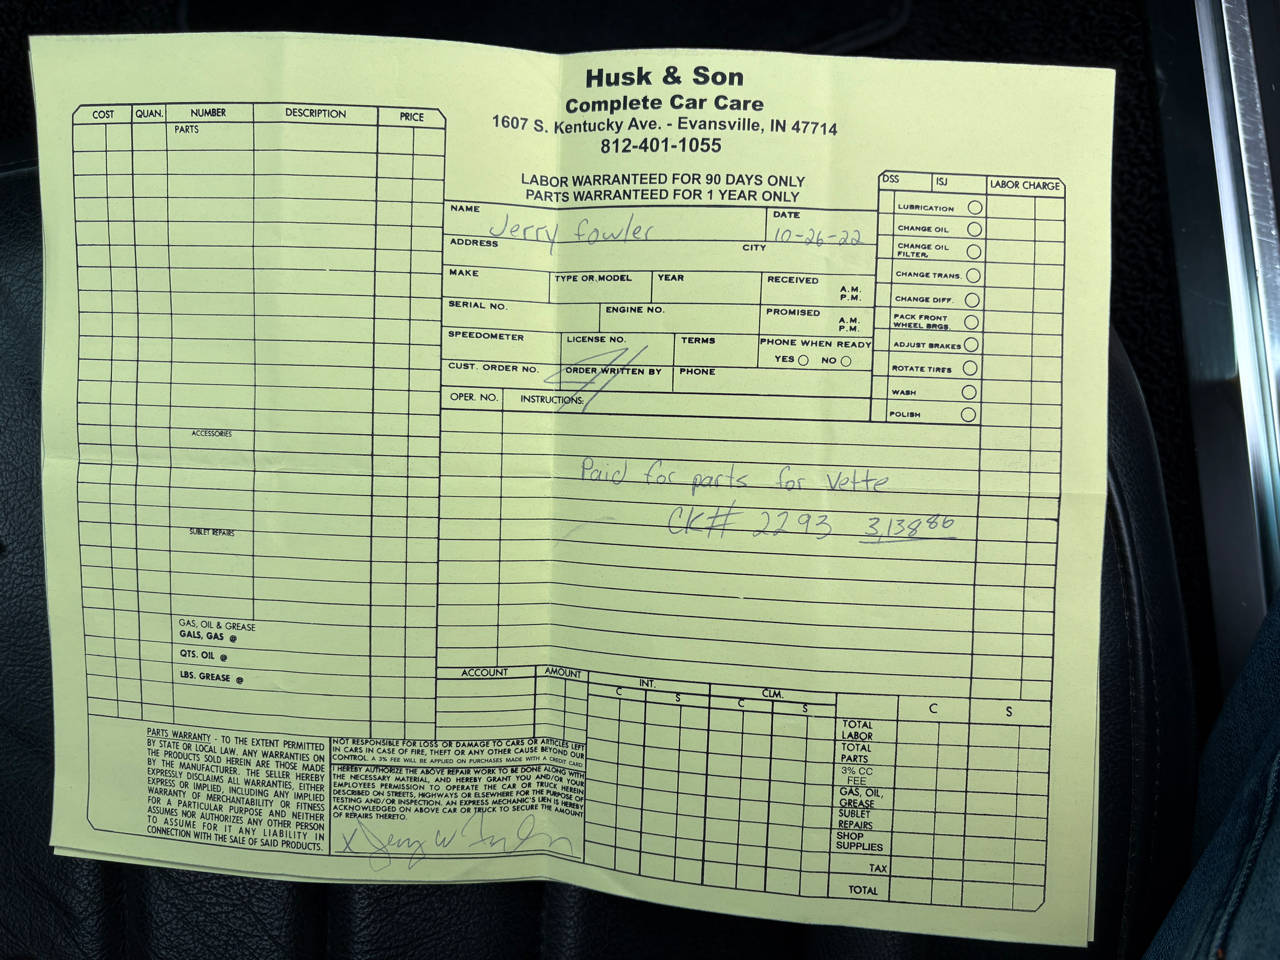 Husk & Son
Complete Car Care
1607 S. Kentucky Ave. - Evansville, IN 47714
812-401-1055
LABOR WARRANTEED FOR 90 DAYS ONLY
PARTS WARRANTEED FOR 1 YEAR ONLY
COST QUAN. NUMBER DESCRIPTION PRICE
PARTS
ACCESSORIES
SUBLET REPAIRS
GAS, OIL & GREASE
GALS, GAS @
QTS. OIL @
LBS. GREASE @
NAME Jerry Fowler DATE 10-26-22
ADDRESS CITY
MAKE TYPE OR MODEL YEAR RECEIVED A.M. P.M.
SERIAL NO. ENGINE NO. PROMISED A.M. P.M.
SPEEDOMETER LICENSE NO. TERMS PHONE WHEN READY
YES NO
CUST. ORDER NO. ORDER WRITTEN BY PHONE
OPER. NO. INSTRUCTIONS:
DSS ISJ LABOR CHARGE
LUBRICATION
CHANGE OIL
CHANGE OIL
FILTER,
CHANGE TRANS.
CHANGE DIFF.
PACK FRONT
WHEEL BRGS.
ADJUST BRAKES
ROTATE TIRES
WASH
POLISH
Paid for parts for Vette
CK# 2293 3,138.86
ACCOUNT AMOUNT INT. CLM.
C S C S C S
TOTAL
LABOR
TOTAL
PARTS
3% CC
FEE
GAS, OIL,
GREASE
SUBLET
REPAIRS
SHOP
SUPPLIES
TAX
TOTAL
PARTS WARRANTY - TO THE EXTENT PERMITTED
BY STATE OR LOCAL LAW. ANY WARRANTIES ON
THE PRODUCTS SOLD HEREIN ARE THOSE MADE
BY THE MANUFACTURER. THE SELLER HEREBY
EXPRESSLY DISCLAIMS ALL WARRANTIES, EITHER
EXPRESS OR IMPLIED, INCLUDING ANY IMPLIED
WARRANTY OF MERCHANTABILITY OR FITNESS
FOR A PARTICULAR PURPOSE AND NEITHER
ASSUMES NOR AUTHORIZES ANY OTHER PERSON
TO ASSUME FOR IT ANY LIABILITY IN
CONNECTION WITH THE SALE OF SAID PRODUCTS.
NOT RESPONSIBLE FOR LOSS OR DAMAGE TO CARS OR ARTICLES LEFT
IN CARS IN CASE OF FIRE, THEFT OR ANY OTHER CAUSE BEYOND OUR
CONTROL. A 3% FEE WILL BE APPLIED ON PURCHASES MADE WITH A CREDIT CARD
I HEREBY AUTHORIZE THE ABOVE REPAIR WORK TO BE DONE ALONG WITH
THE NECESSARY MATERIAL, AND HEREBY GRANT YOU AND/OR YOUR
EMPLOYEES PERMISSION TO OPERATE THE CAR OR TRUCK HEREIN
DESCRIBED ON STREETS, HIGHWAYS OR ELSEWHERE FOR THE PURPOSE OF
TESTING AND/OR INSPECTION. AN EXPRESS MECHANIC'S LIEN IS HEREBY
ACKNOWLEDGED ON ABOVE CAR OR TRUCK TO SECURE THE AMOUNT
OF REPAIRS THERETO.
X Jerry W Fowler